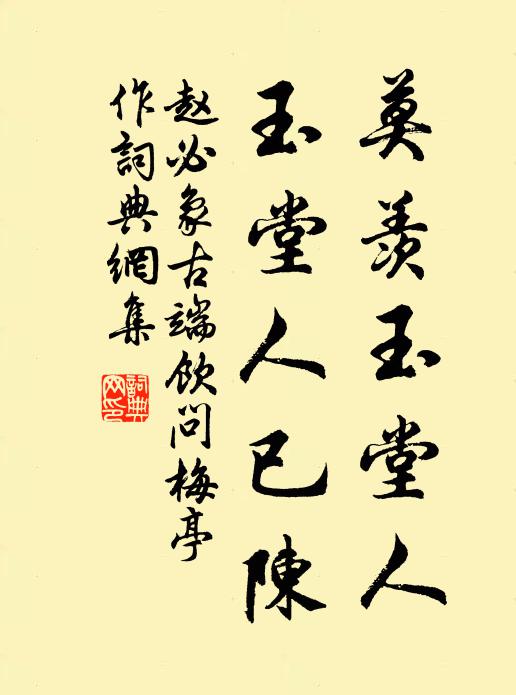 莫羨玉堂人
玉堂人已陳
赵必象古端飲问梅亭
作詞典網集
詞典网印